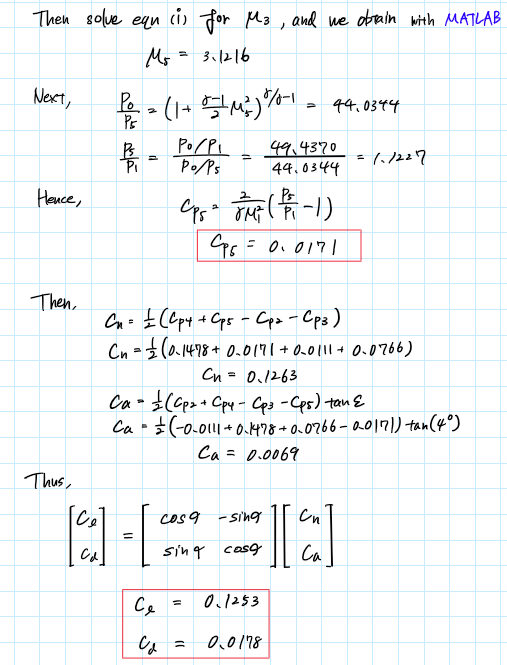 Then solve eqn (i) for M₃, and we obtain with MATLAB
M₅ = 3.1216
Next, P₀/P₅ = (1 + (γ-1)/2 M₅²)^(γ/γ-1) = 44.0344
P₅/P₁ = (P₀/P₁)/(P₀/P₅) = 49.4370/44.0344 = 1.1227
Hence, Cp₅ = 2/(γM₁²) (P₅/P₁ - 1)
Cp₅ = 0.0171
Then,
Cn = ½(Cp4 + Cp5 - Cp2 - Cp3)
Cn = ½(0.1478 + 0.0171 + 0.0111 + 0.0766)
Cn = 0.1263
Ca = ½(Cp2 + Cp4 - Cp3 - Cp5) tan ε
Ca = ½(-0.0111 + 0.1478 + 0.0766 - 0.0171) tan(4°)
Ca = 0.0069
Thus,
[Cℓ Cd] = [cos9 -sin9 sin9 cos9] [Cn Ca]
Cℓ = 0.1253
Cd = 0.0178